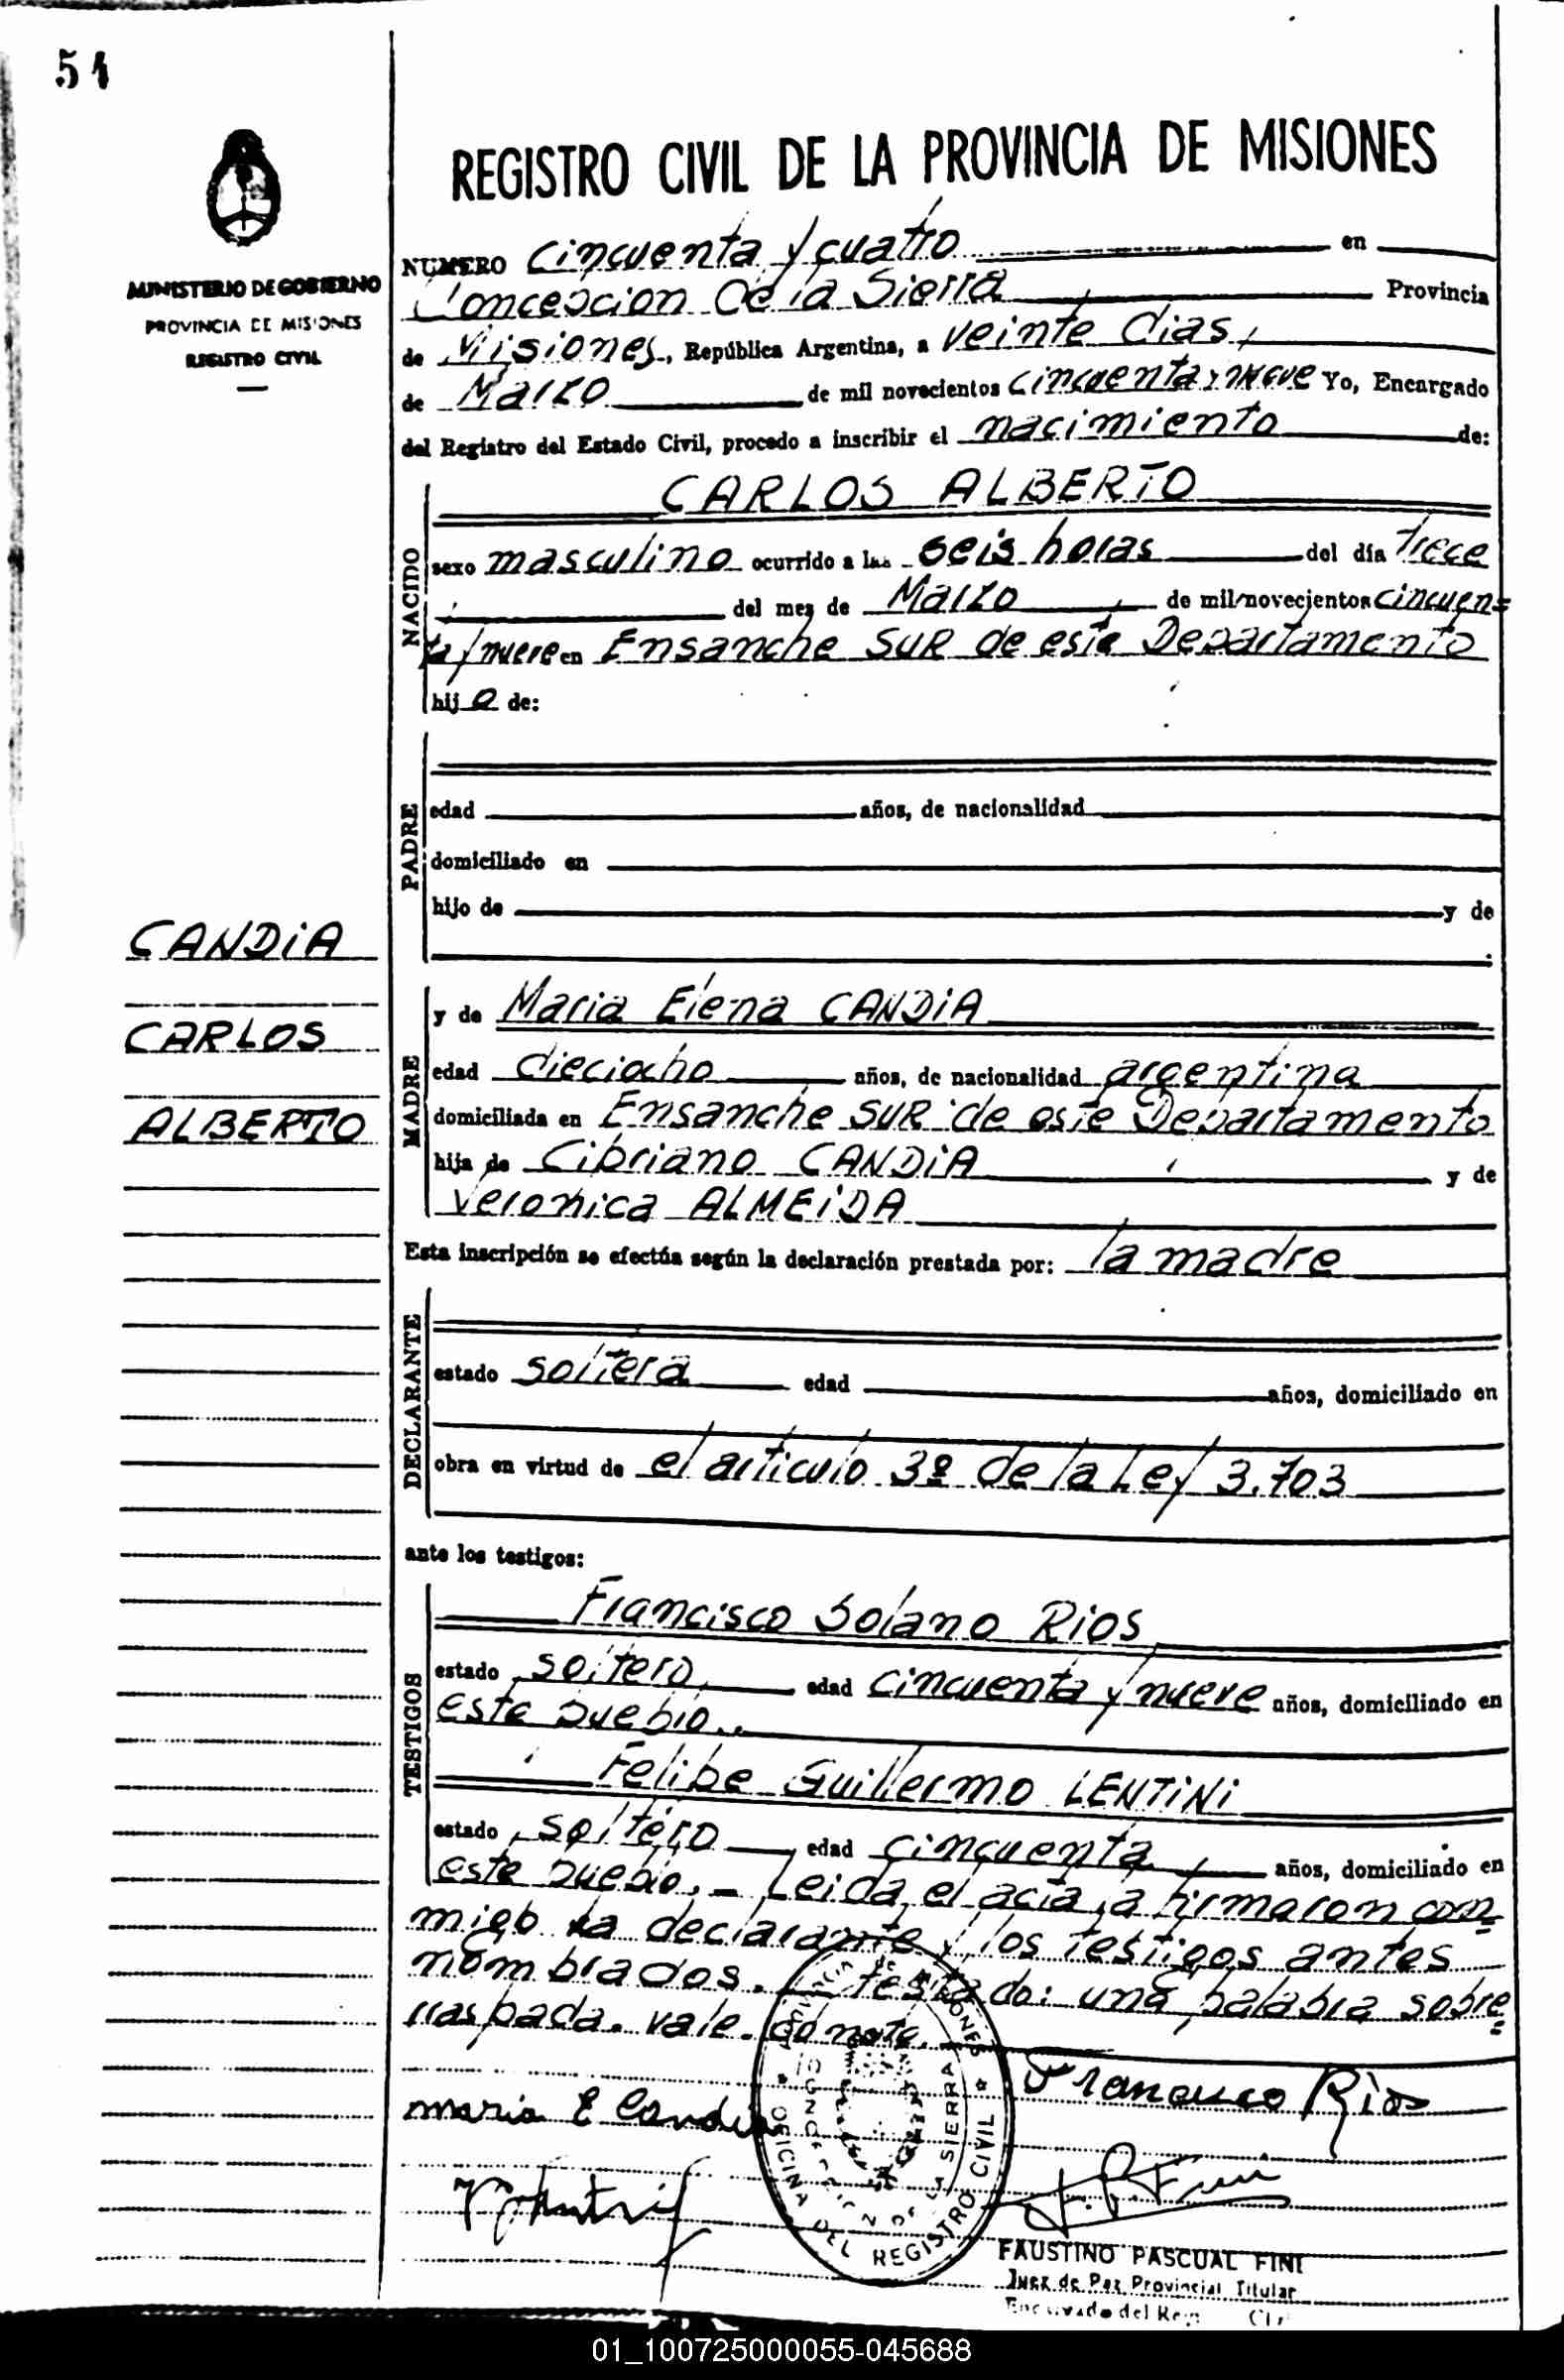 54
MINISTERIO DE GOBIERNO
PROVINCIA DE MISIONES
REGISTRO CIVIL
REGISTRO CIVIL DE LA PROVINCIA DE MISIONES
NUMERO cincuenta y cuatro en
Concepcion de la Sierra Provincia
de Misiones, República Argentina, a veinte dias,
de Marzo de mil novecientos cincuenta y nueve Yo, Encargado
del Registro del Estado Civil, procedo a inscribir el nacimiento de:
NACIDO
CARLOS ALBERTO
sexo masculino ocurrido a las seis horas del día trece
del mes de Marzo de mil novecientos cincuen=
ta y nueve en Ensanche SUR de este Departamento
hijo de:
PADRE
edad años, de nacionalidad
domiciliado en
hijo de y de
CANDIA
CARLOS
ALBERTO
MADRE
y de Maria Elena CANDIA
edad dieciocho años, de nacionalidad argentina
domiciliada en Ensanche SUR de este Departamento
hija de Cipriano CANDIA y de
Veronica ALMEIDA
Esta inscripción se efectúa según la declaración prestada por: la madre
DECLARANTE
estado soltera edad años, domiciliado en
obra en virtud de el articulo 3º de la Ley 3.703
ante los testigos:
TESTIGOS
Francisco Solano Rios
estado soltero edad cincuenta y nueve años, domiciliado en
este pueblo..
Felipe Guillermo LENTINI
estado soltero edad cincuenta años, domiciliado en
este pueblo. - Leida el acta, la firmaron con=
migo la declarante y los testigos antes
nombrados. testado: una palabra sobre=
rraspada. vale.
maria E Candia
Francisco Rios
PROVINCIA DE MISIONES
CONCEPCION DE LA SIERRA
OFICINA DEL REGISTRO CIVIL
FAUSTINO PASCUAL FINI
Juez de Paz Provincial Titular
Encargado del Reg. Civ
01_100725000055-045688